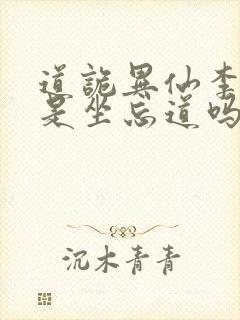 道诡异仙李
是坐忘道吗
沉木青青